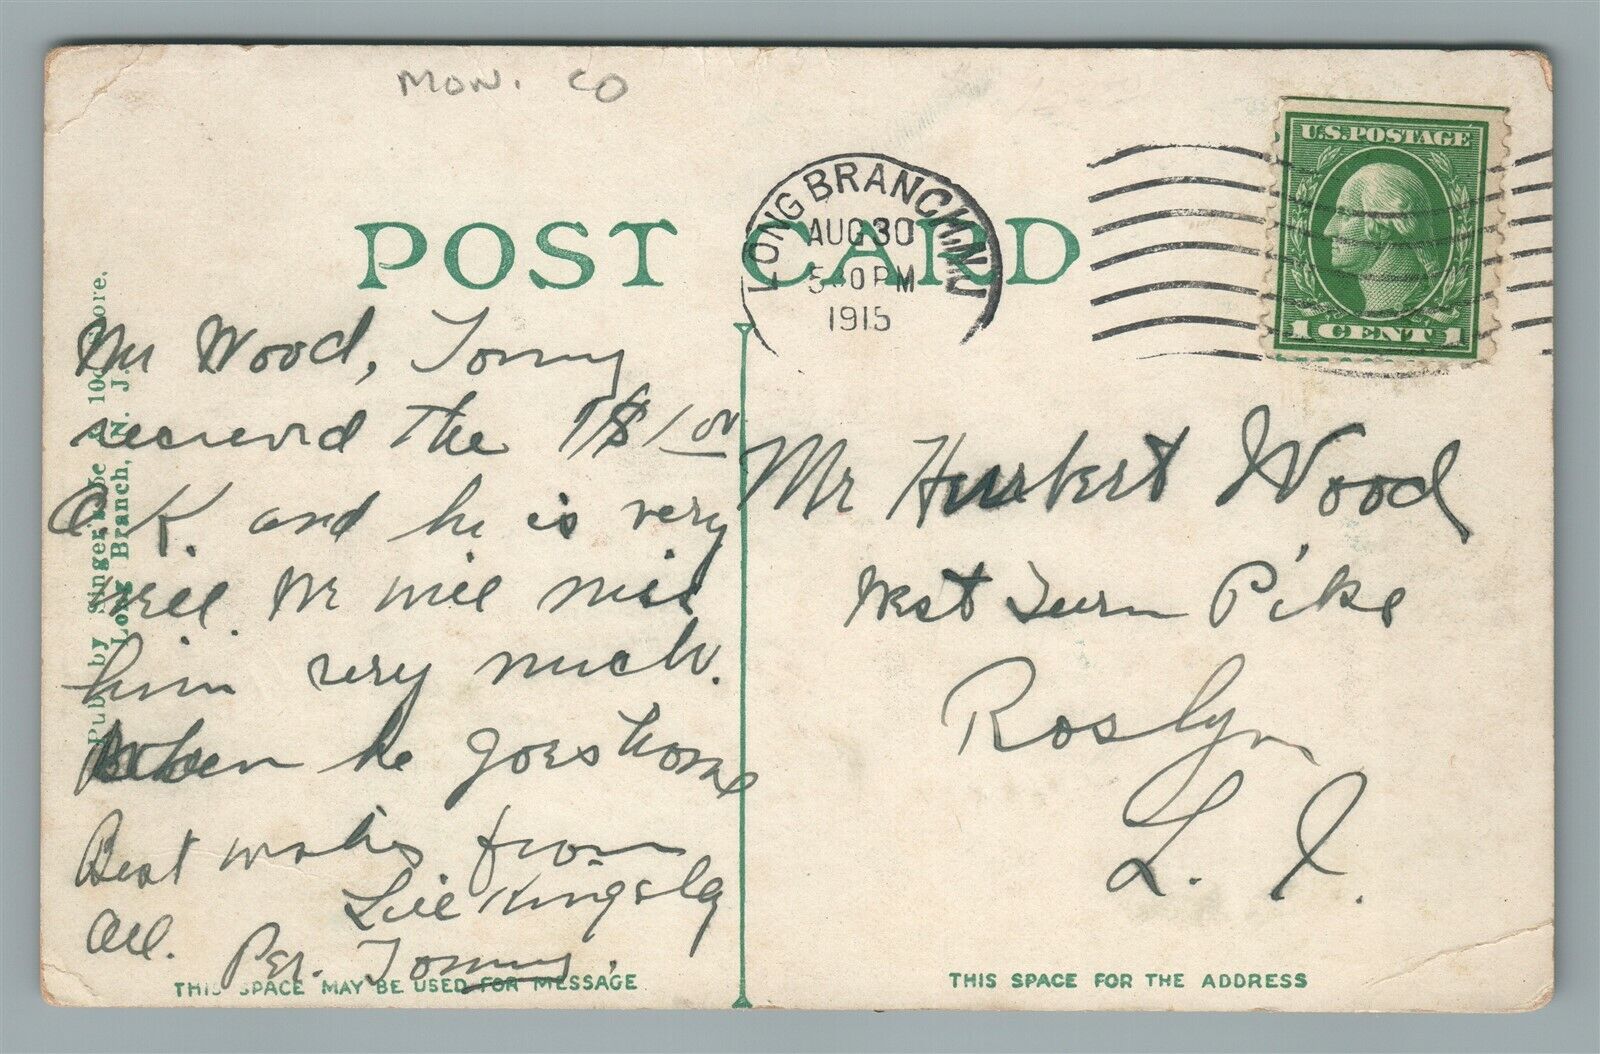 Mon. Co
POST CARD
LONG BRANCH, N.J.
AUG 30
5 30 PM
1915
U.S. POSTAGE
1 CENT 1
Pub. by Singer's 5c & 10c Store.
Long Branch, N. J.
Mr Wood, Tommy
recieved the $1 00
O.K. and he is very
well. We will miss
him very much.
When he goes home
Best wishes from
All. Lill Kingsley
Per. Tommy.
Mr Hurbert Wood
West Turn Pike
Roslyn
L. I.
THIS SPACE MAY BE USED FOR MESSAGE
THIS SPACE FOR THE ADDRESS